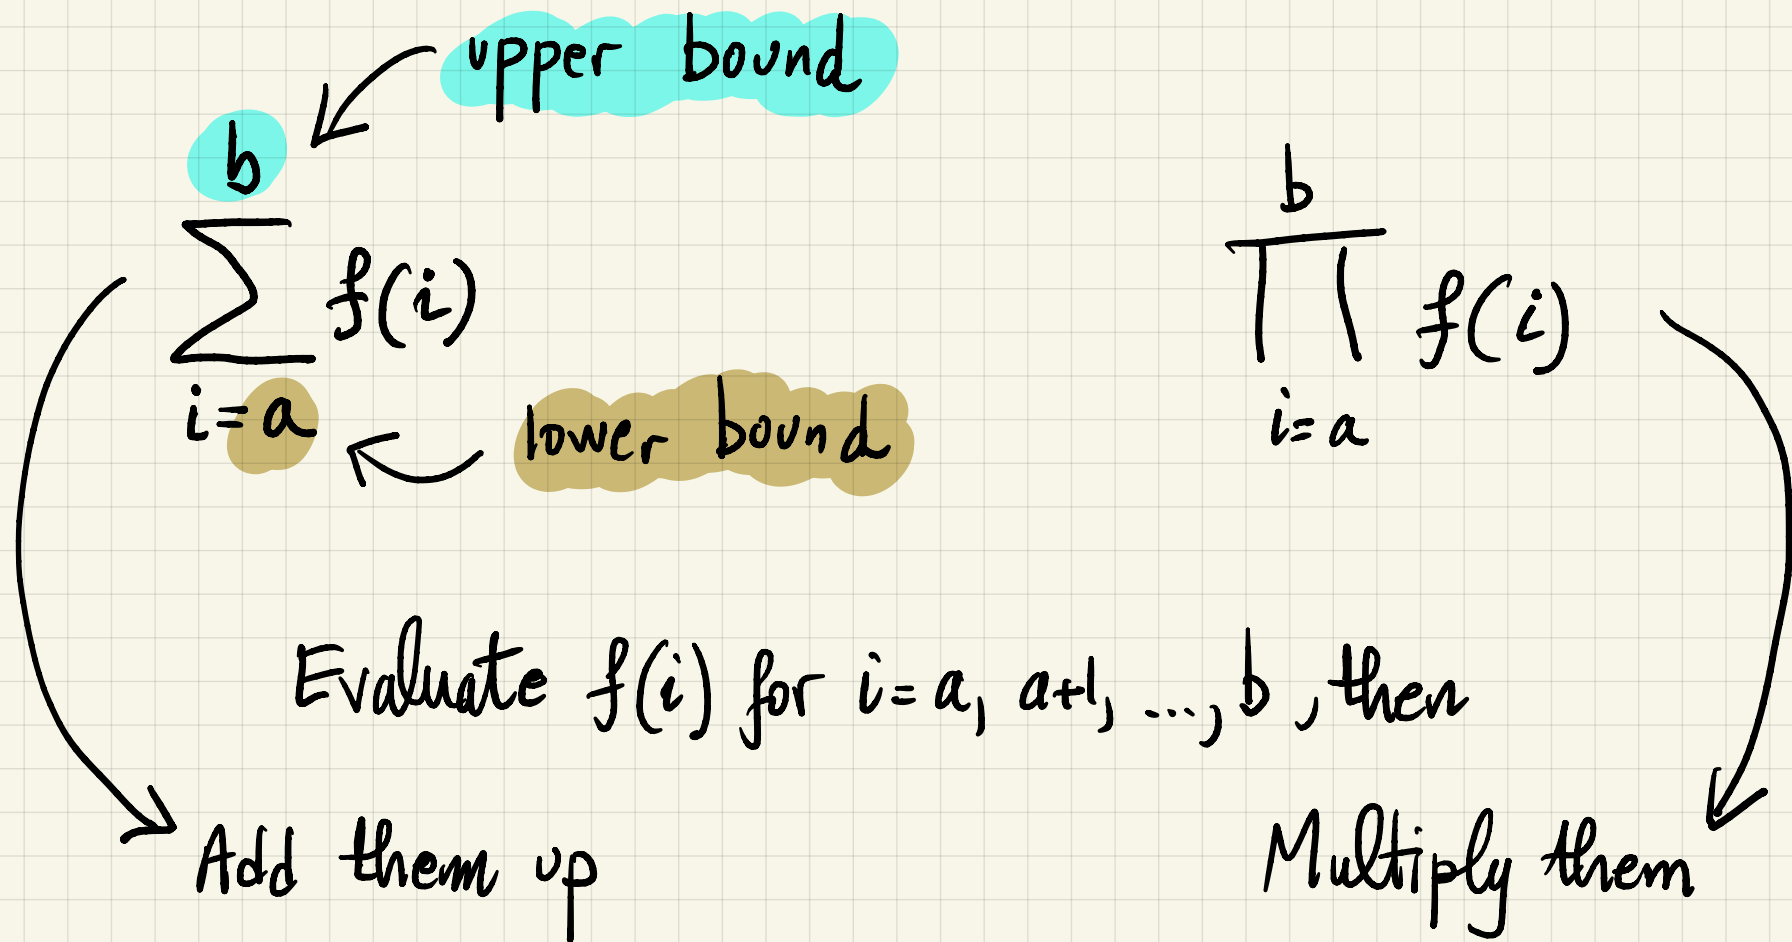 upper bound
b
∑ f(i)
i = a
lower bound
b
∏ f(i)
i = a
Evaluate f(i) for i = a, a+1, ..., b, then
Add them up
Multiply them